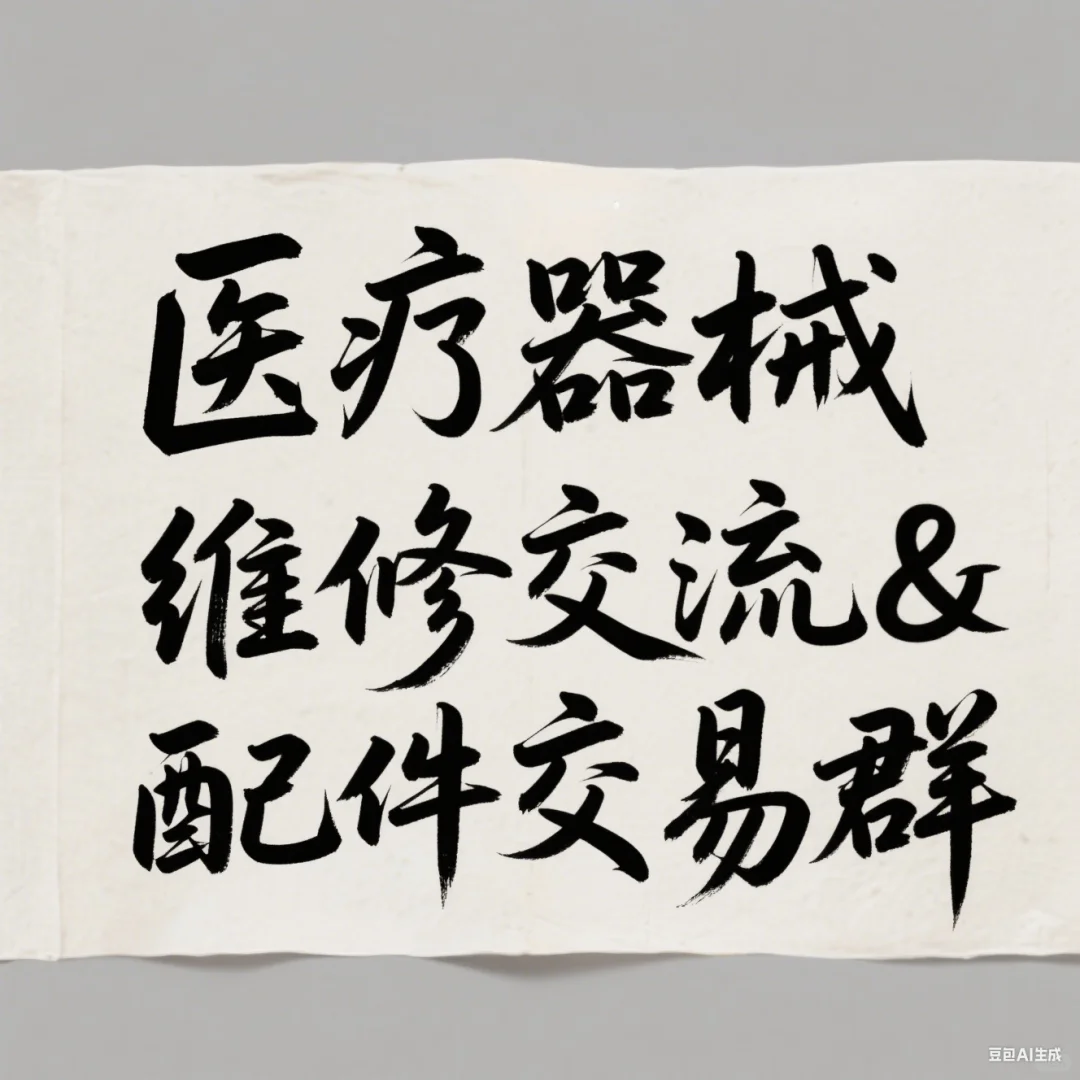 医疗器械
维修交流&
配件交易群
豆包AI生成